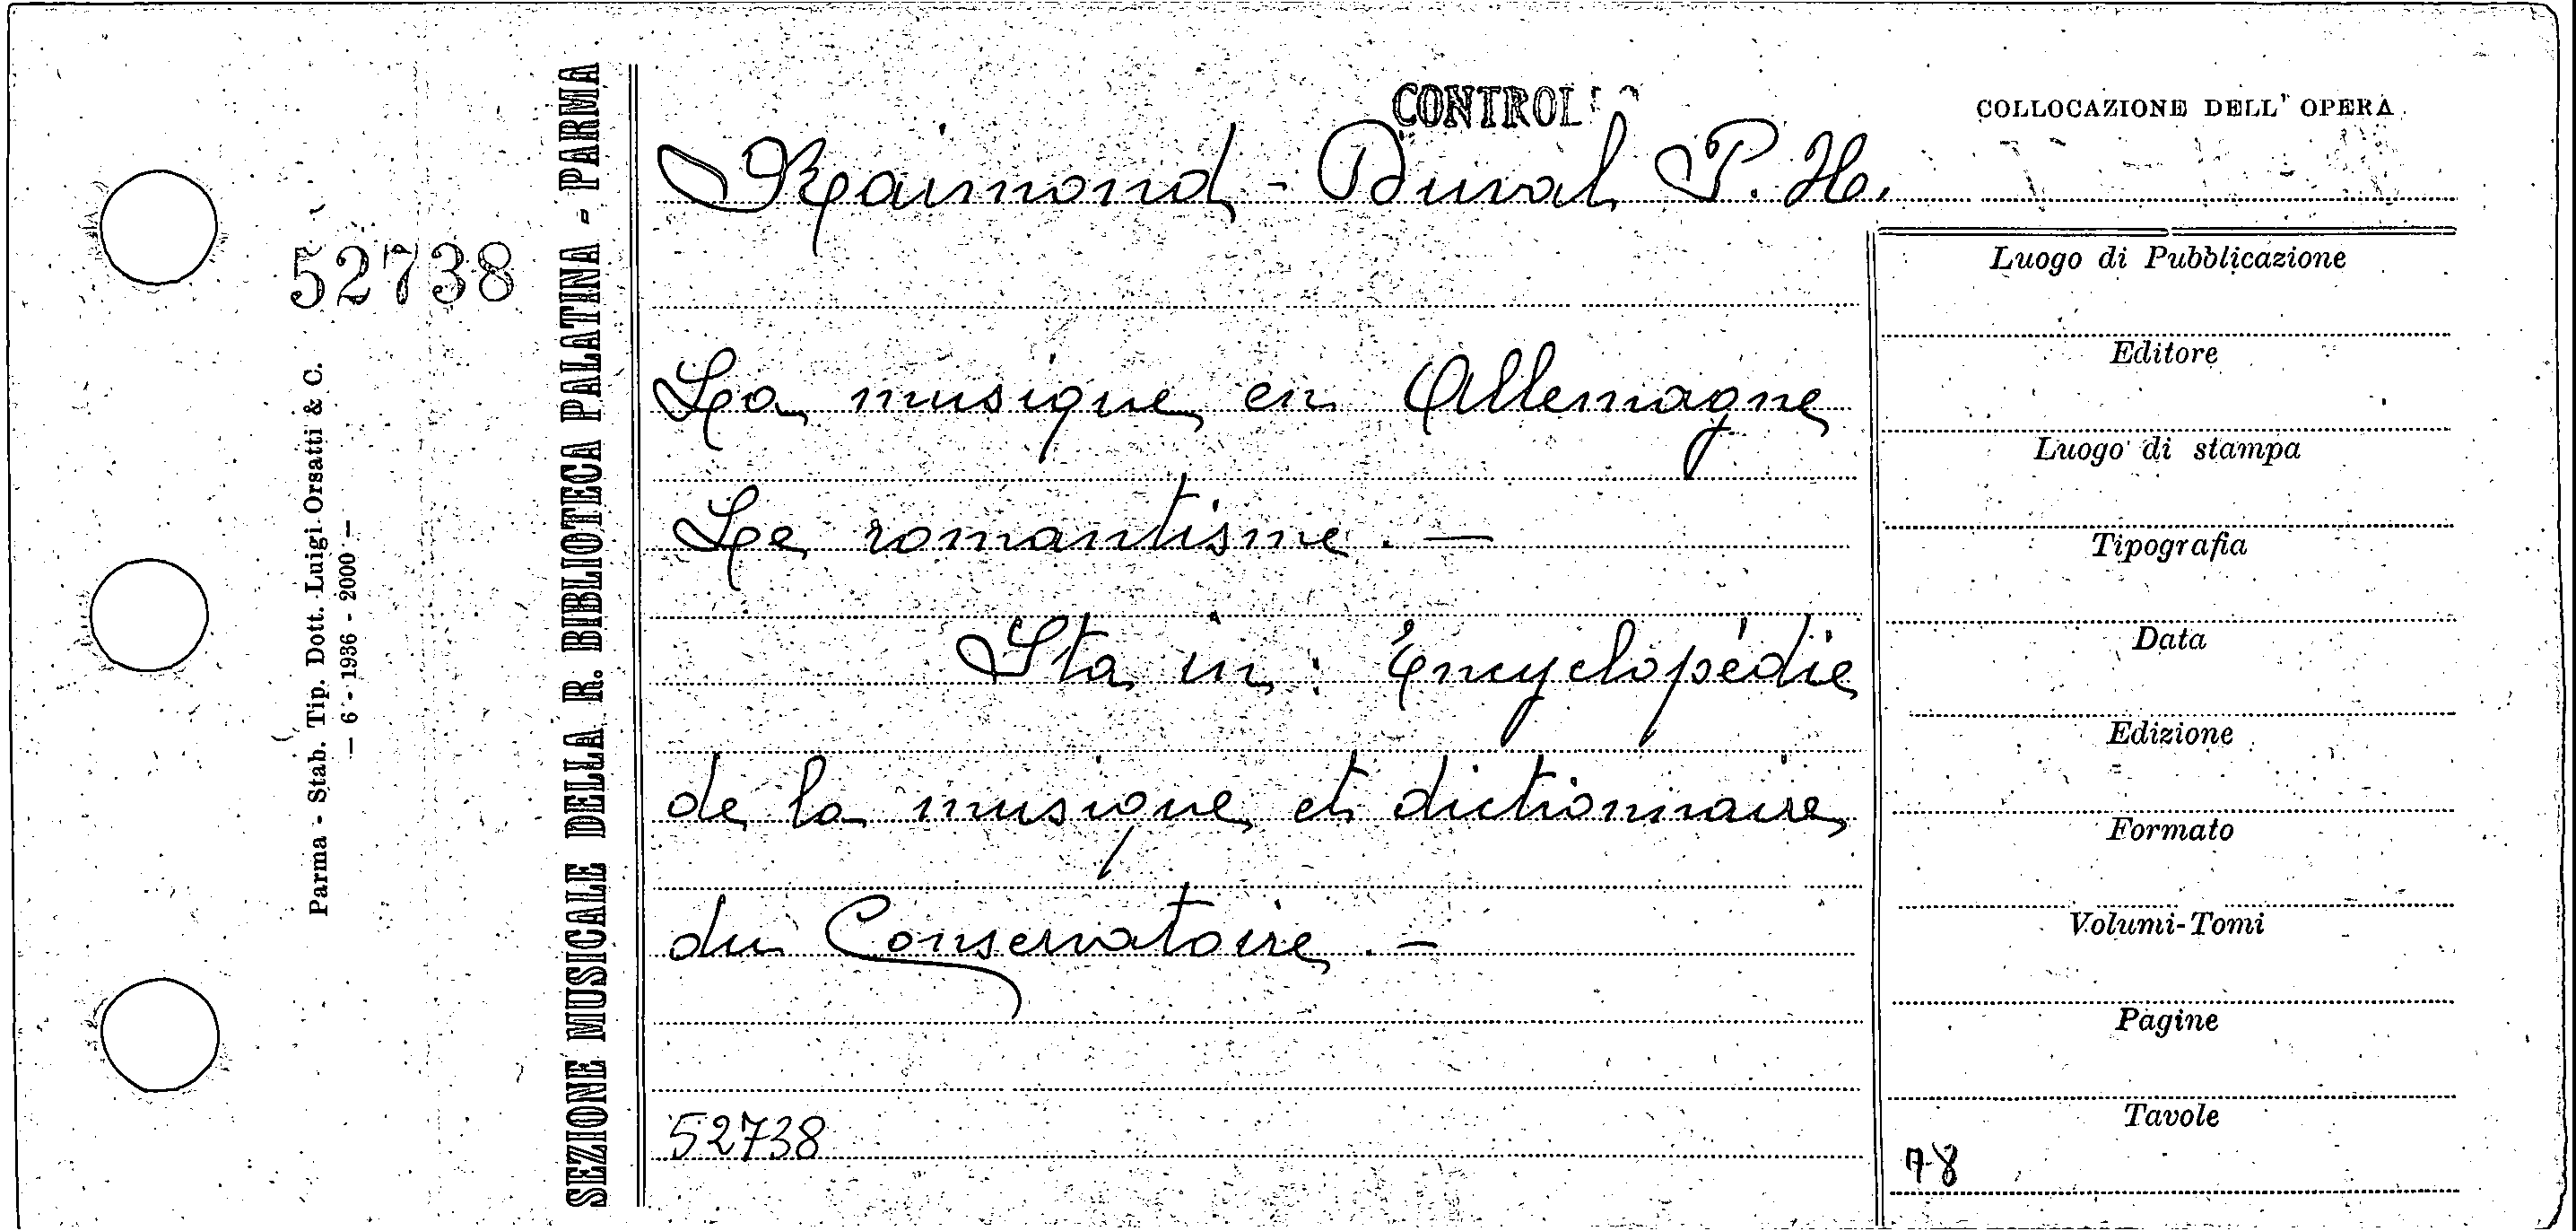 CONTROL
COLLOCAZIONE DELL' OPERA
Raimond - Duval P. H.
52738
SEZIONE MUSICALE DELLA R. BIBLIOTECA PALATINA - PARMA
Parma - Stab. Tip. Dott. Luigi Orsatti & C.
— 6 - 1936 - 2000 —
La musique en Allemagne
Le romantisme. —
Sta in: Encyclopédie
de la musique et dictionnaire
du Conservatoire. —
52738
Luogo di Pubblicazione
Editore
Luogo di stampa
Tipografia
Data
Edizione
Formato
Volumi-Tomi
Pagine
Tavole